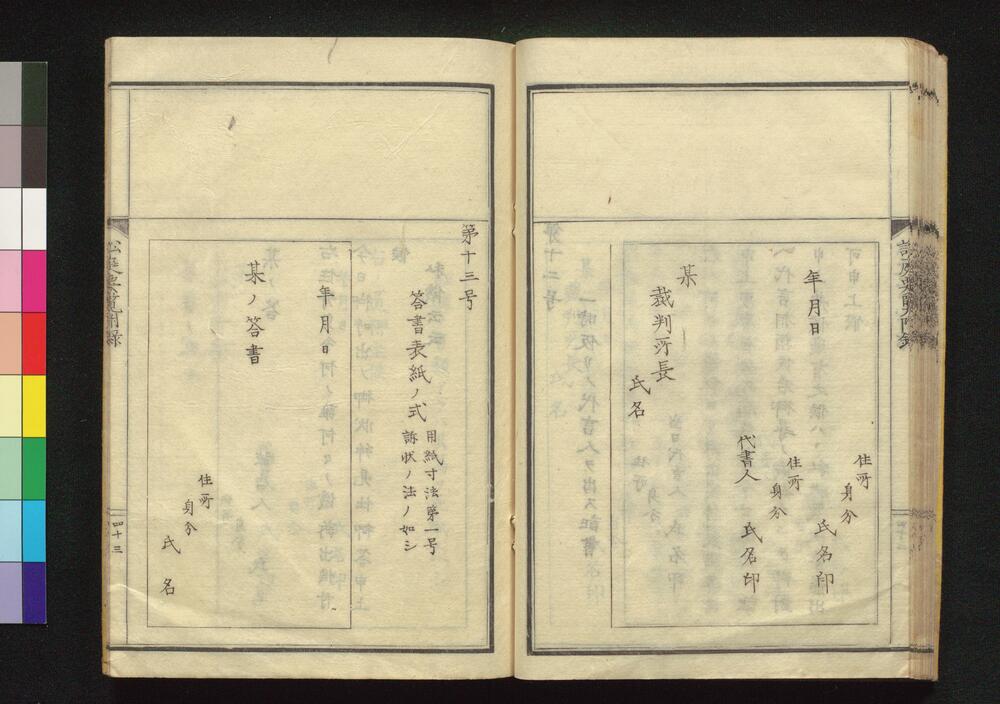 年月日
住所
身分
氏名印
住所
身分
代書人
氏名印
某
裁判所長
氏名
第十三号
答書表紙ノ式
用紙寸法第一号
訴状ノ法ノ如シ
年月日
某ノ答書
住所
身分
氏名
四十三